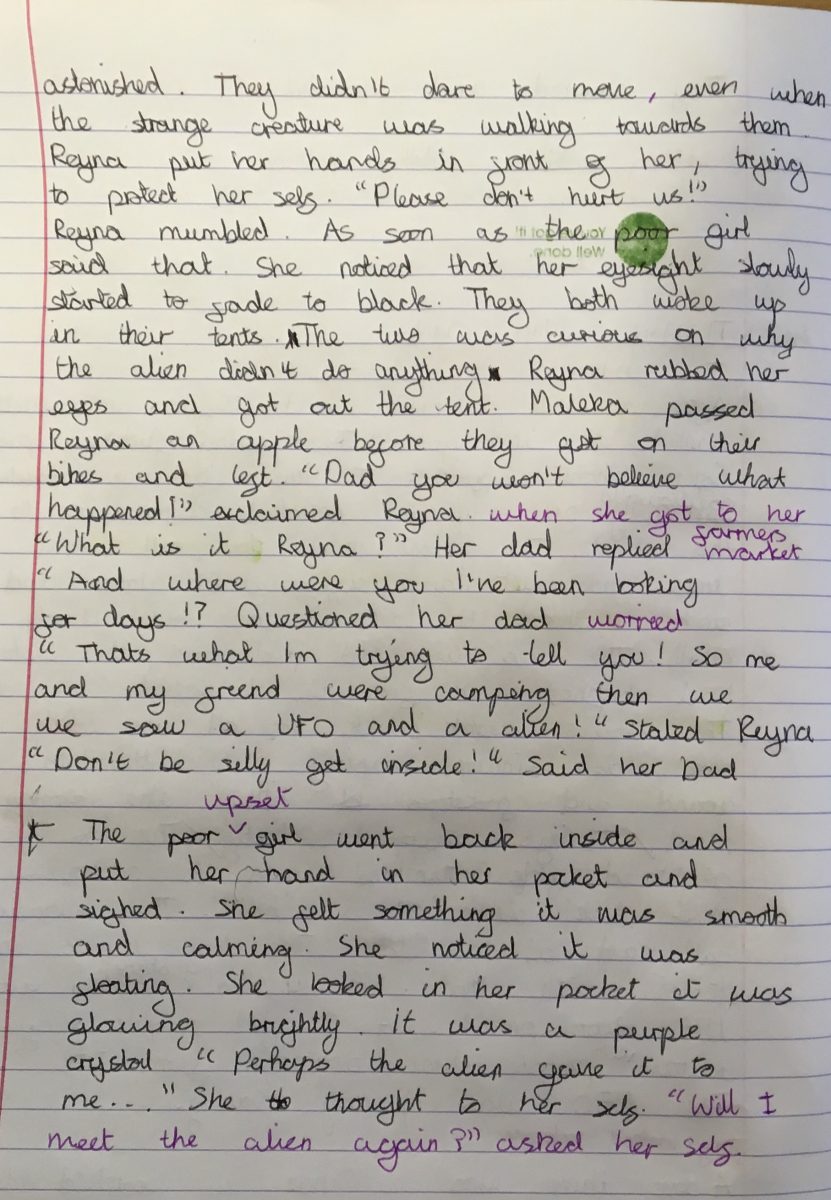 astonished. They didn't dare to move, even when
the strange creature was walking towards them.
Reyna put her hands in front of her, trying
to protect her self. "Please don't hurt us!"
Reyna mumbled. As soon as the poor girl
said that. She noticed that her eyesight slowly
started to fade to black. They both woke up
in their tents. The two was curious on why
the alien didn't do anything Reyna rubbed her
eyes and got out the tent. Maleka passed
Reyna an apple before they got on their
bikes and left. "Dad you won't believe what
happened!" exclaimed Reyna. when she got to her
farmers
"What is it Reyna?" Her dad replied market
"And where were you I've been looking
for days!? Questioned her dad worried
"Thats what Im trying to tell you! So me
and my freend were camping then we
we saw a UFO and a alien!" Stated Reyna
"Don't be silly get inside!" Said her Dad
upset
The poor girl went back inside and
put her hand in her pocket and
sighed. She felt something it was smooth
and calming. She noticed it was
floating. She looked in her pocket it was
glowing brightly. it was a purple
crystal "Perhaps the alien gave it to
me..." She thought to her self. "Will I
meet the alien again?" asked her self.